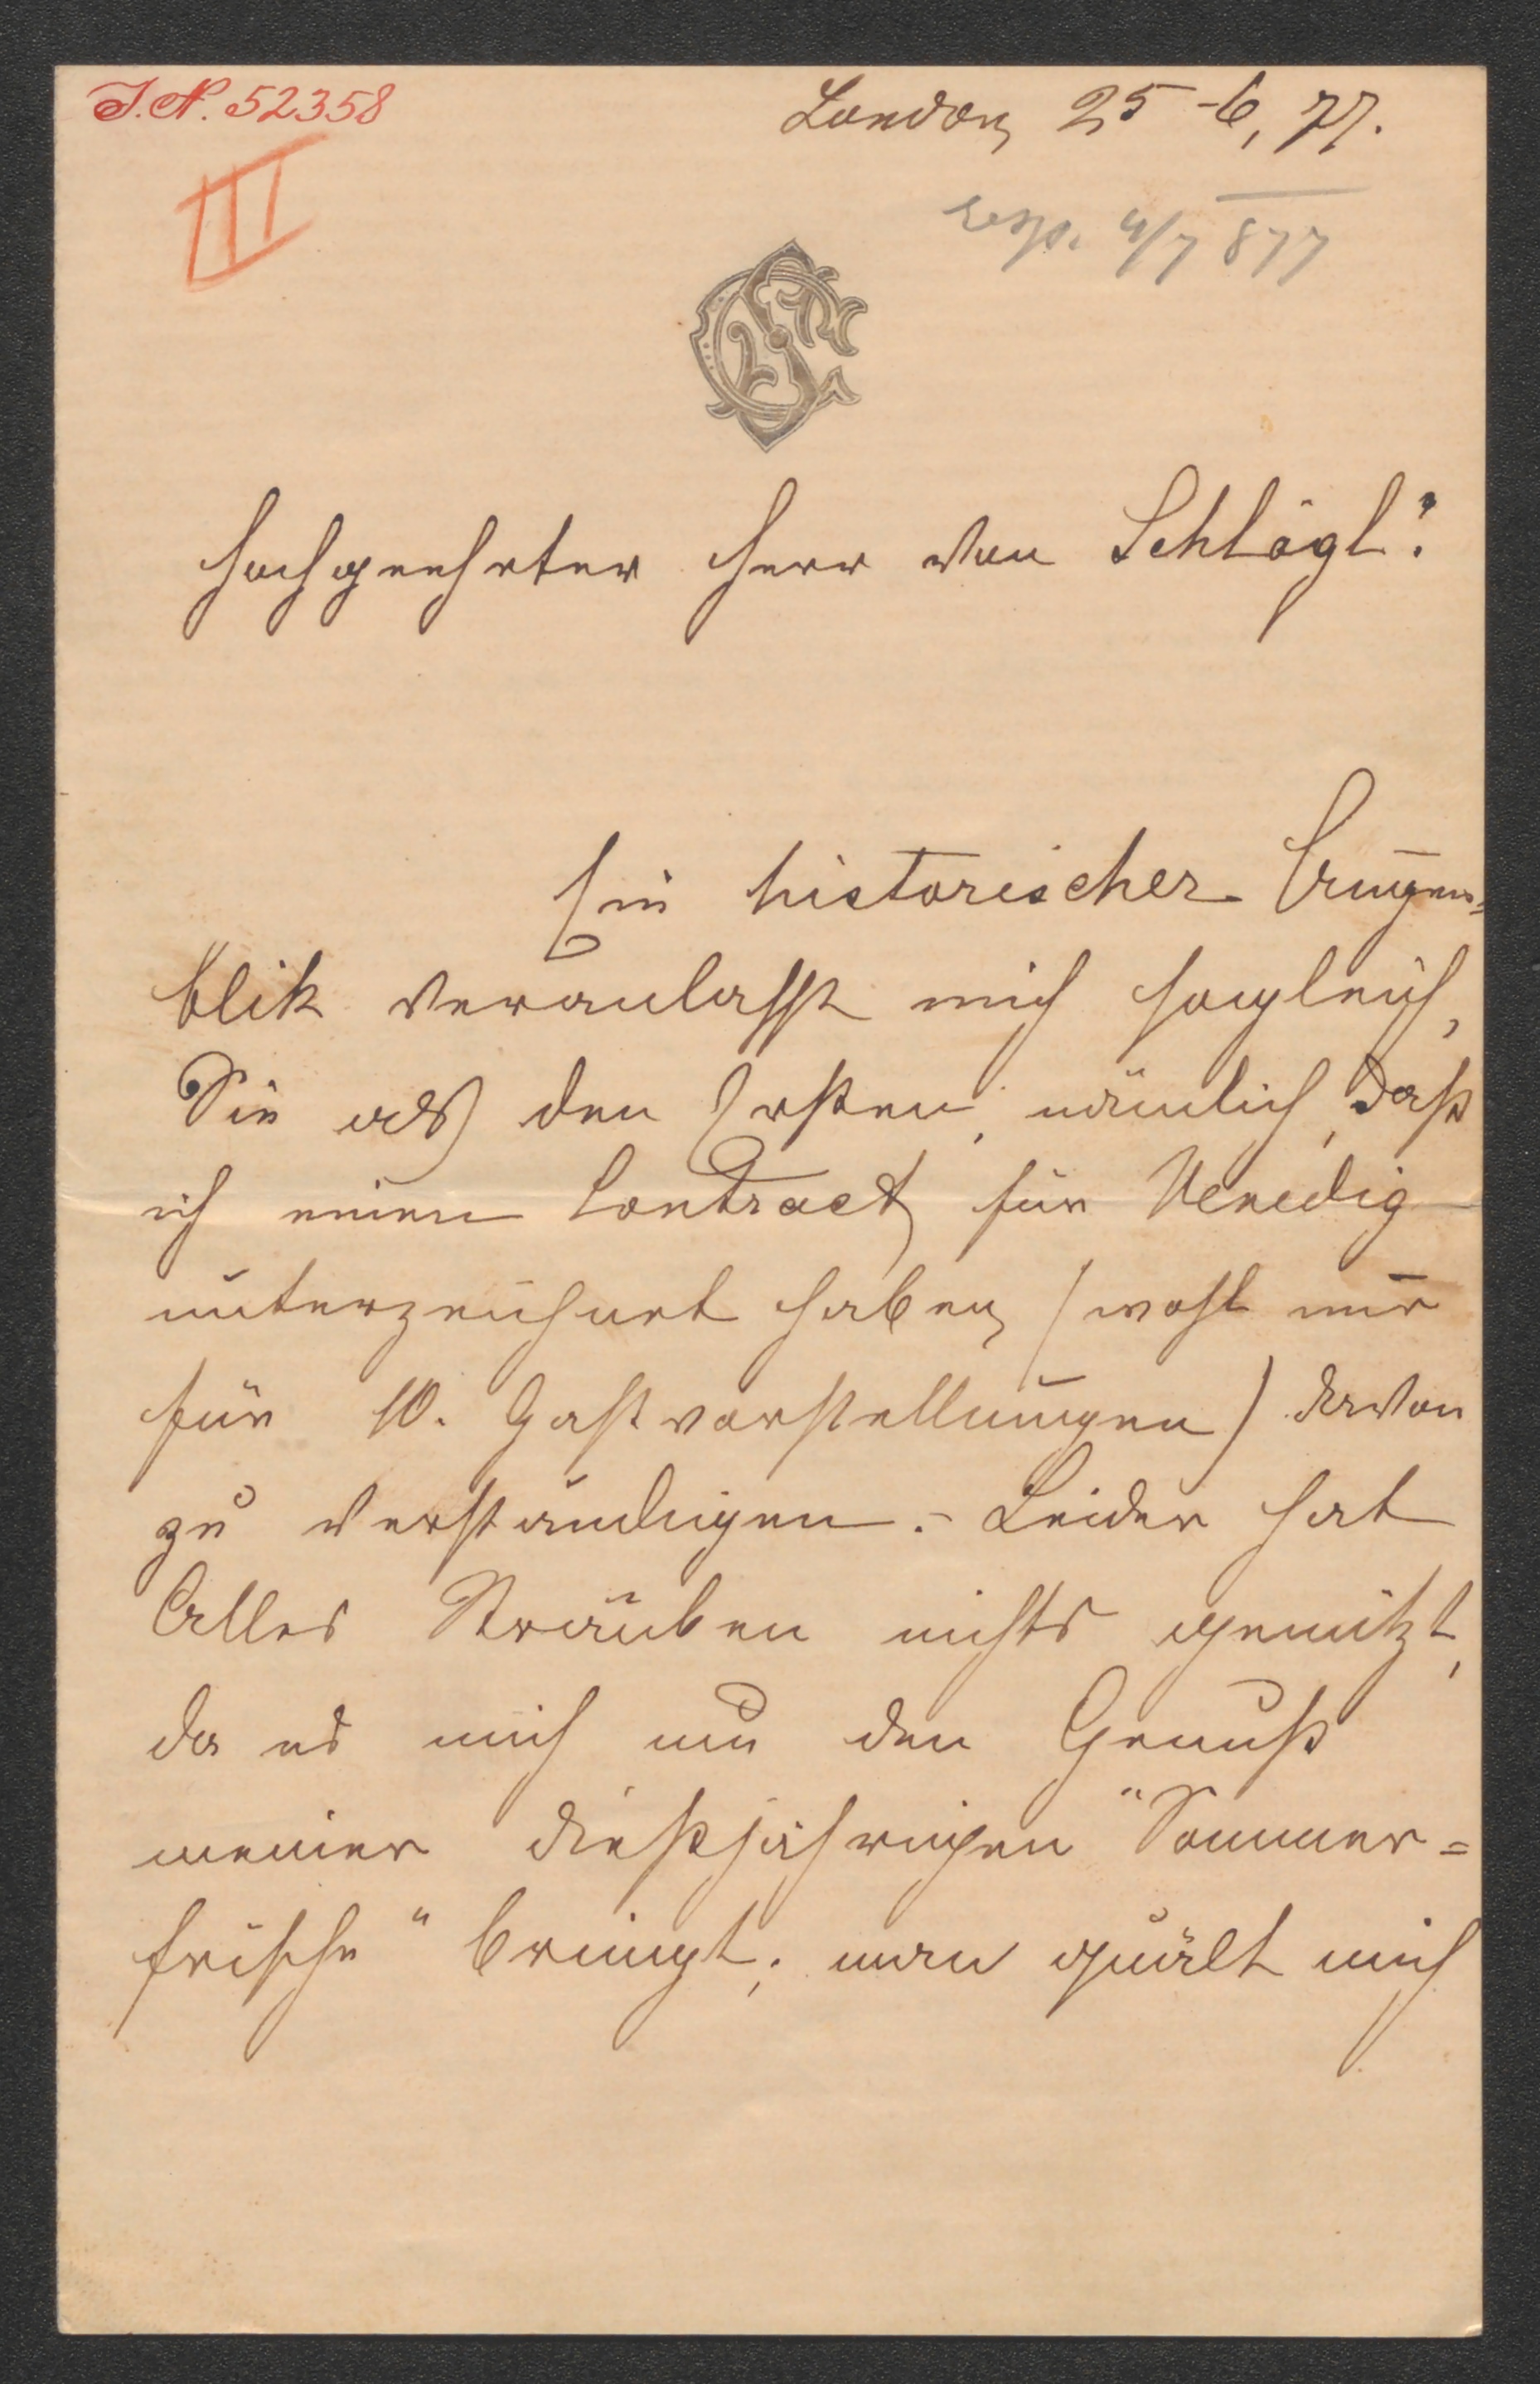 J.N. 52358
London 25-6, 77.
III
resp. 4/7 877
Hochgeehrter Herr von Schlögl!
Ein historischer Augen=
blik veranlasst mich sogleich,
Sie als den Ersten, nämlich, daß
ich einen Contract für Venedig
unterzeichnet haben (wohl nur
für 10. Gastvorstellungen) davon
zu verständigen. – Leider hat
Alles Sträuben nichts genützt,
da es mich um den Genuß
meiner dießjährigen "Sommer=
frische" bringt; man quält mich